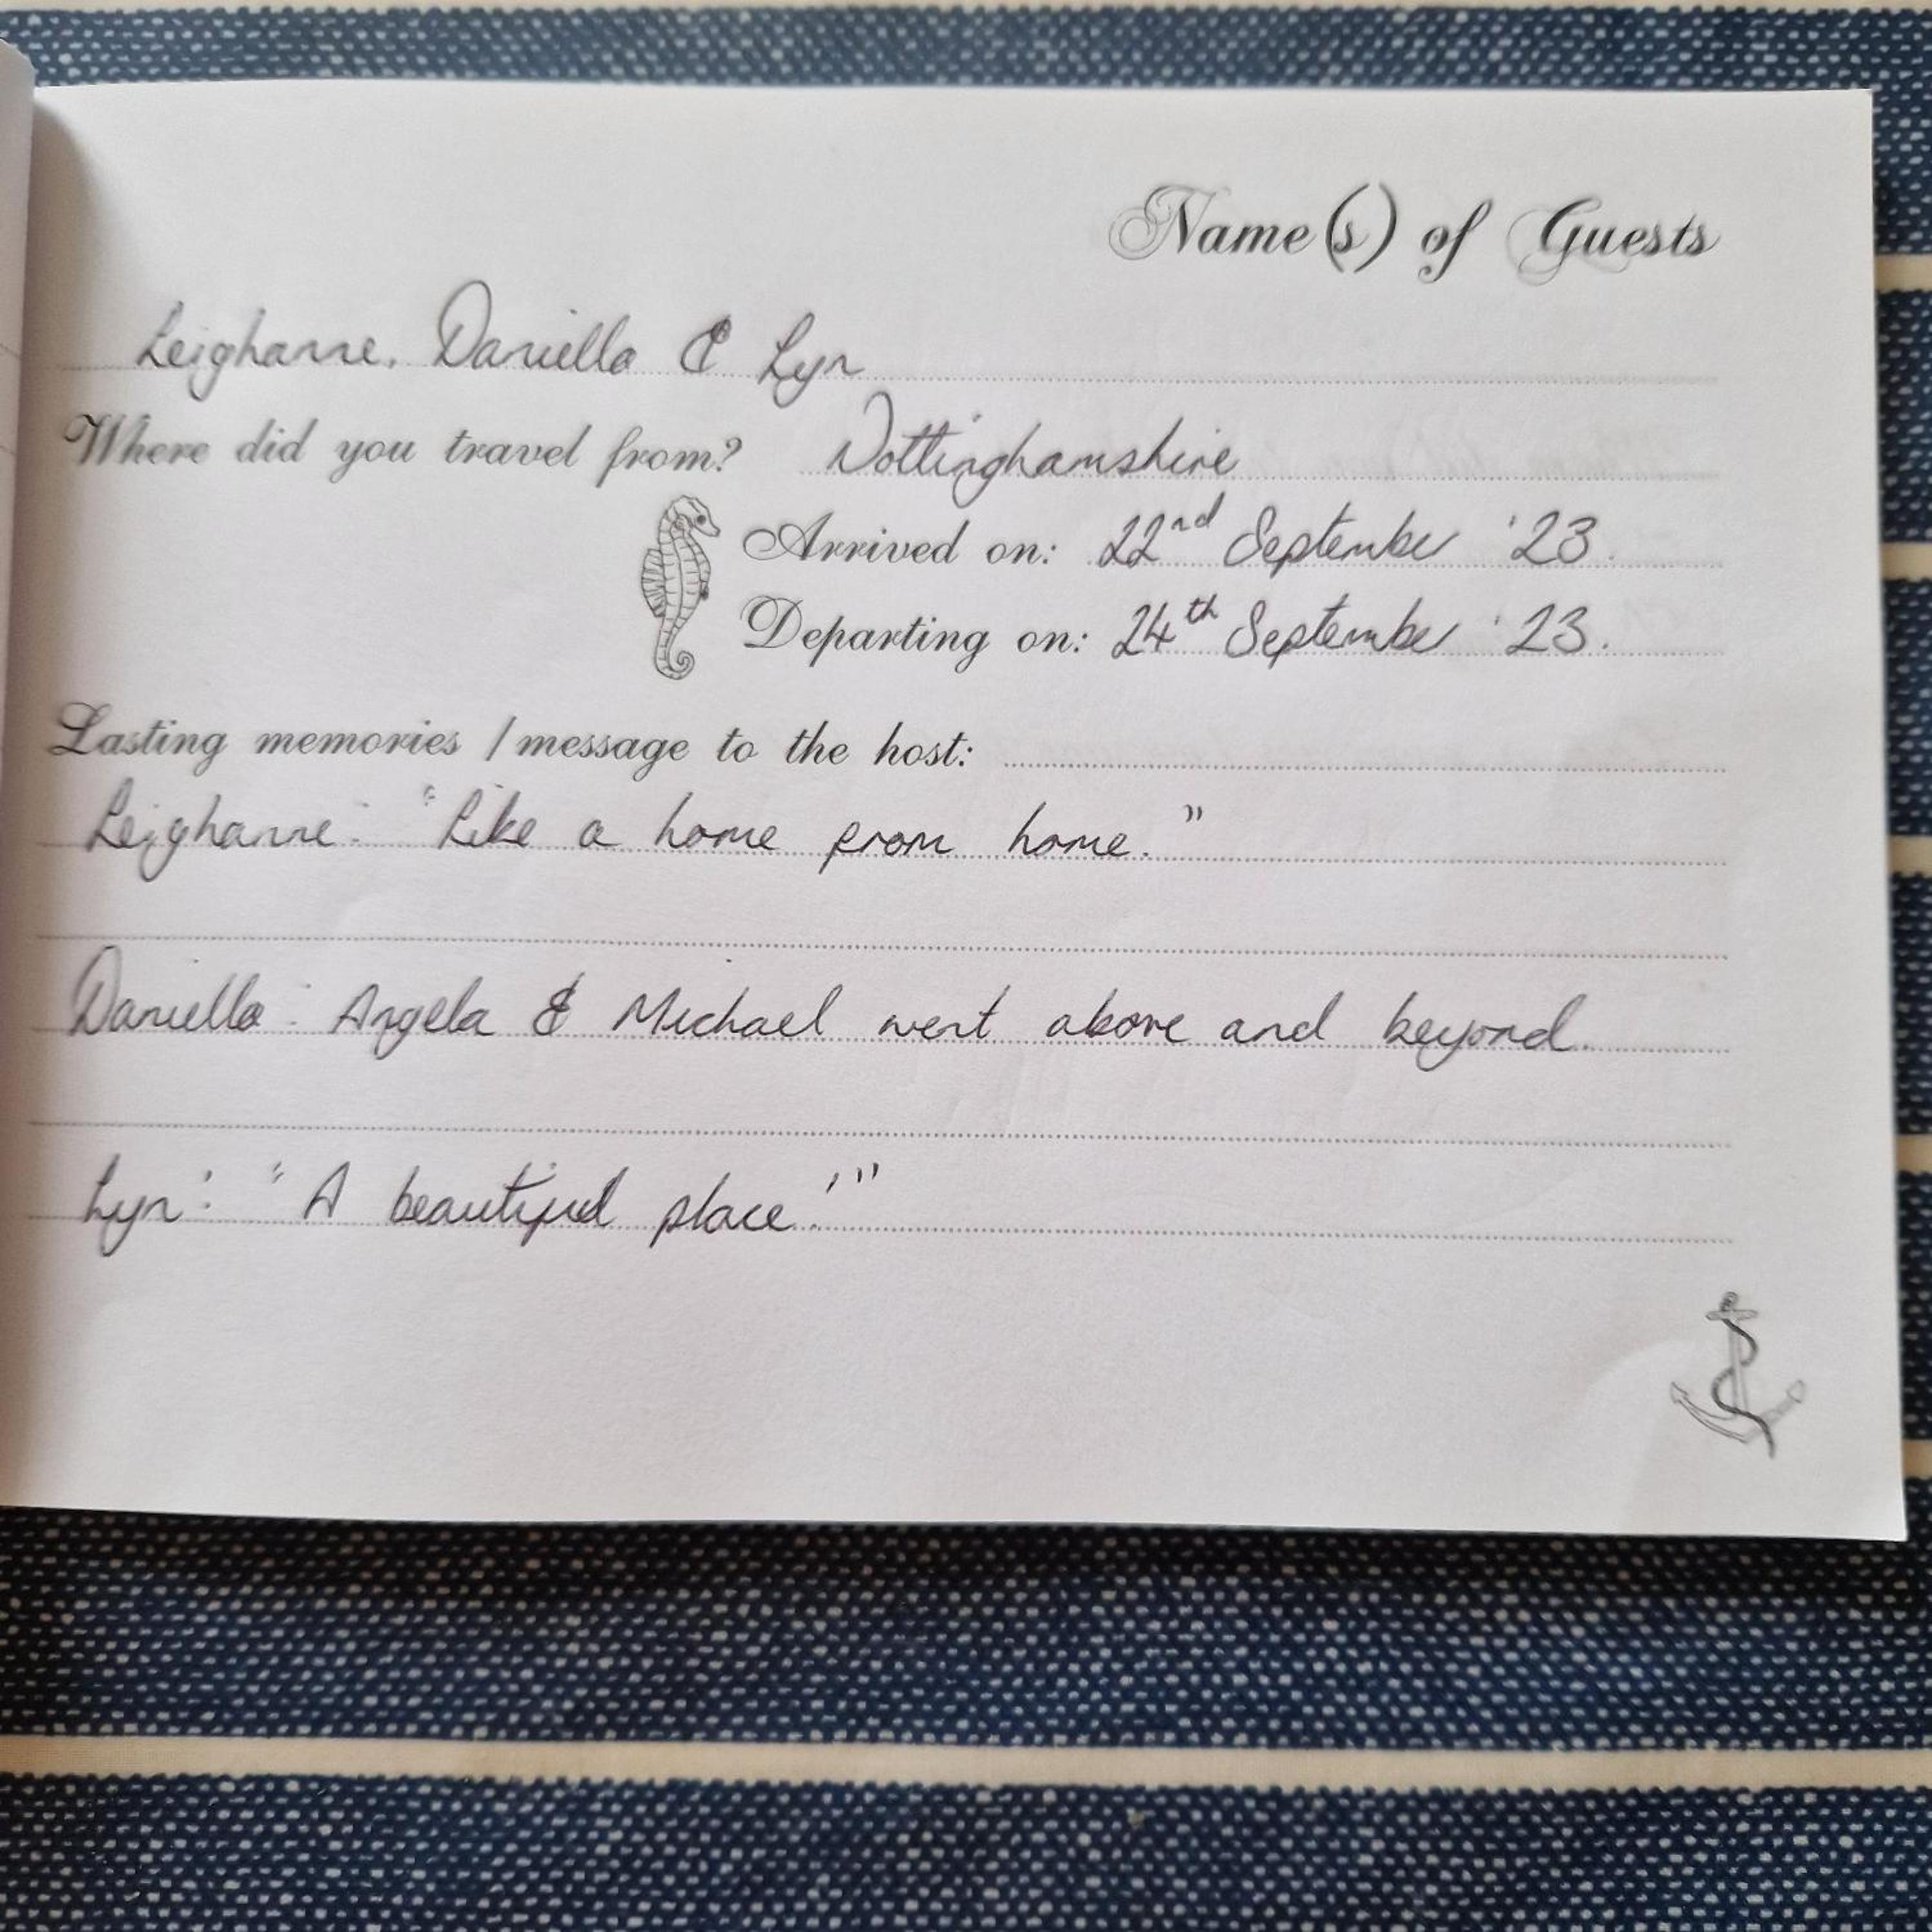 Name(s) of Guests
Leighanne, Daniella & Lyn
Where did you travel from? Nottinghamshire
Arrived on: 22nd September '23.
Departing on: 24th September '23.
Lasting memories / message to the host:
Leighanne: "Like a home from home."
Daniella: Angela & Michael went above and beyond.
Lyn: "A beautiful place!"